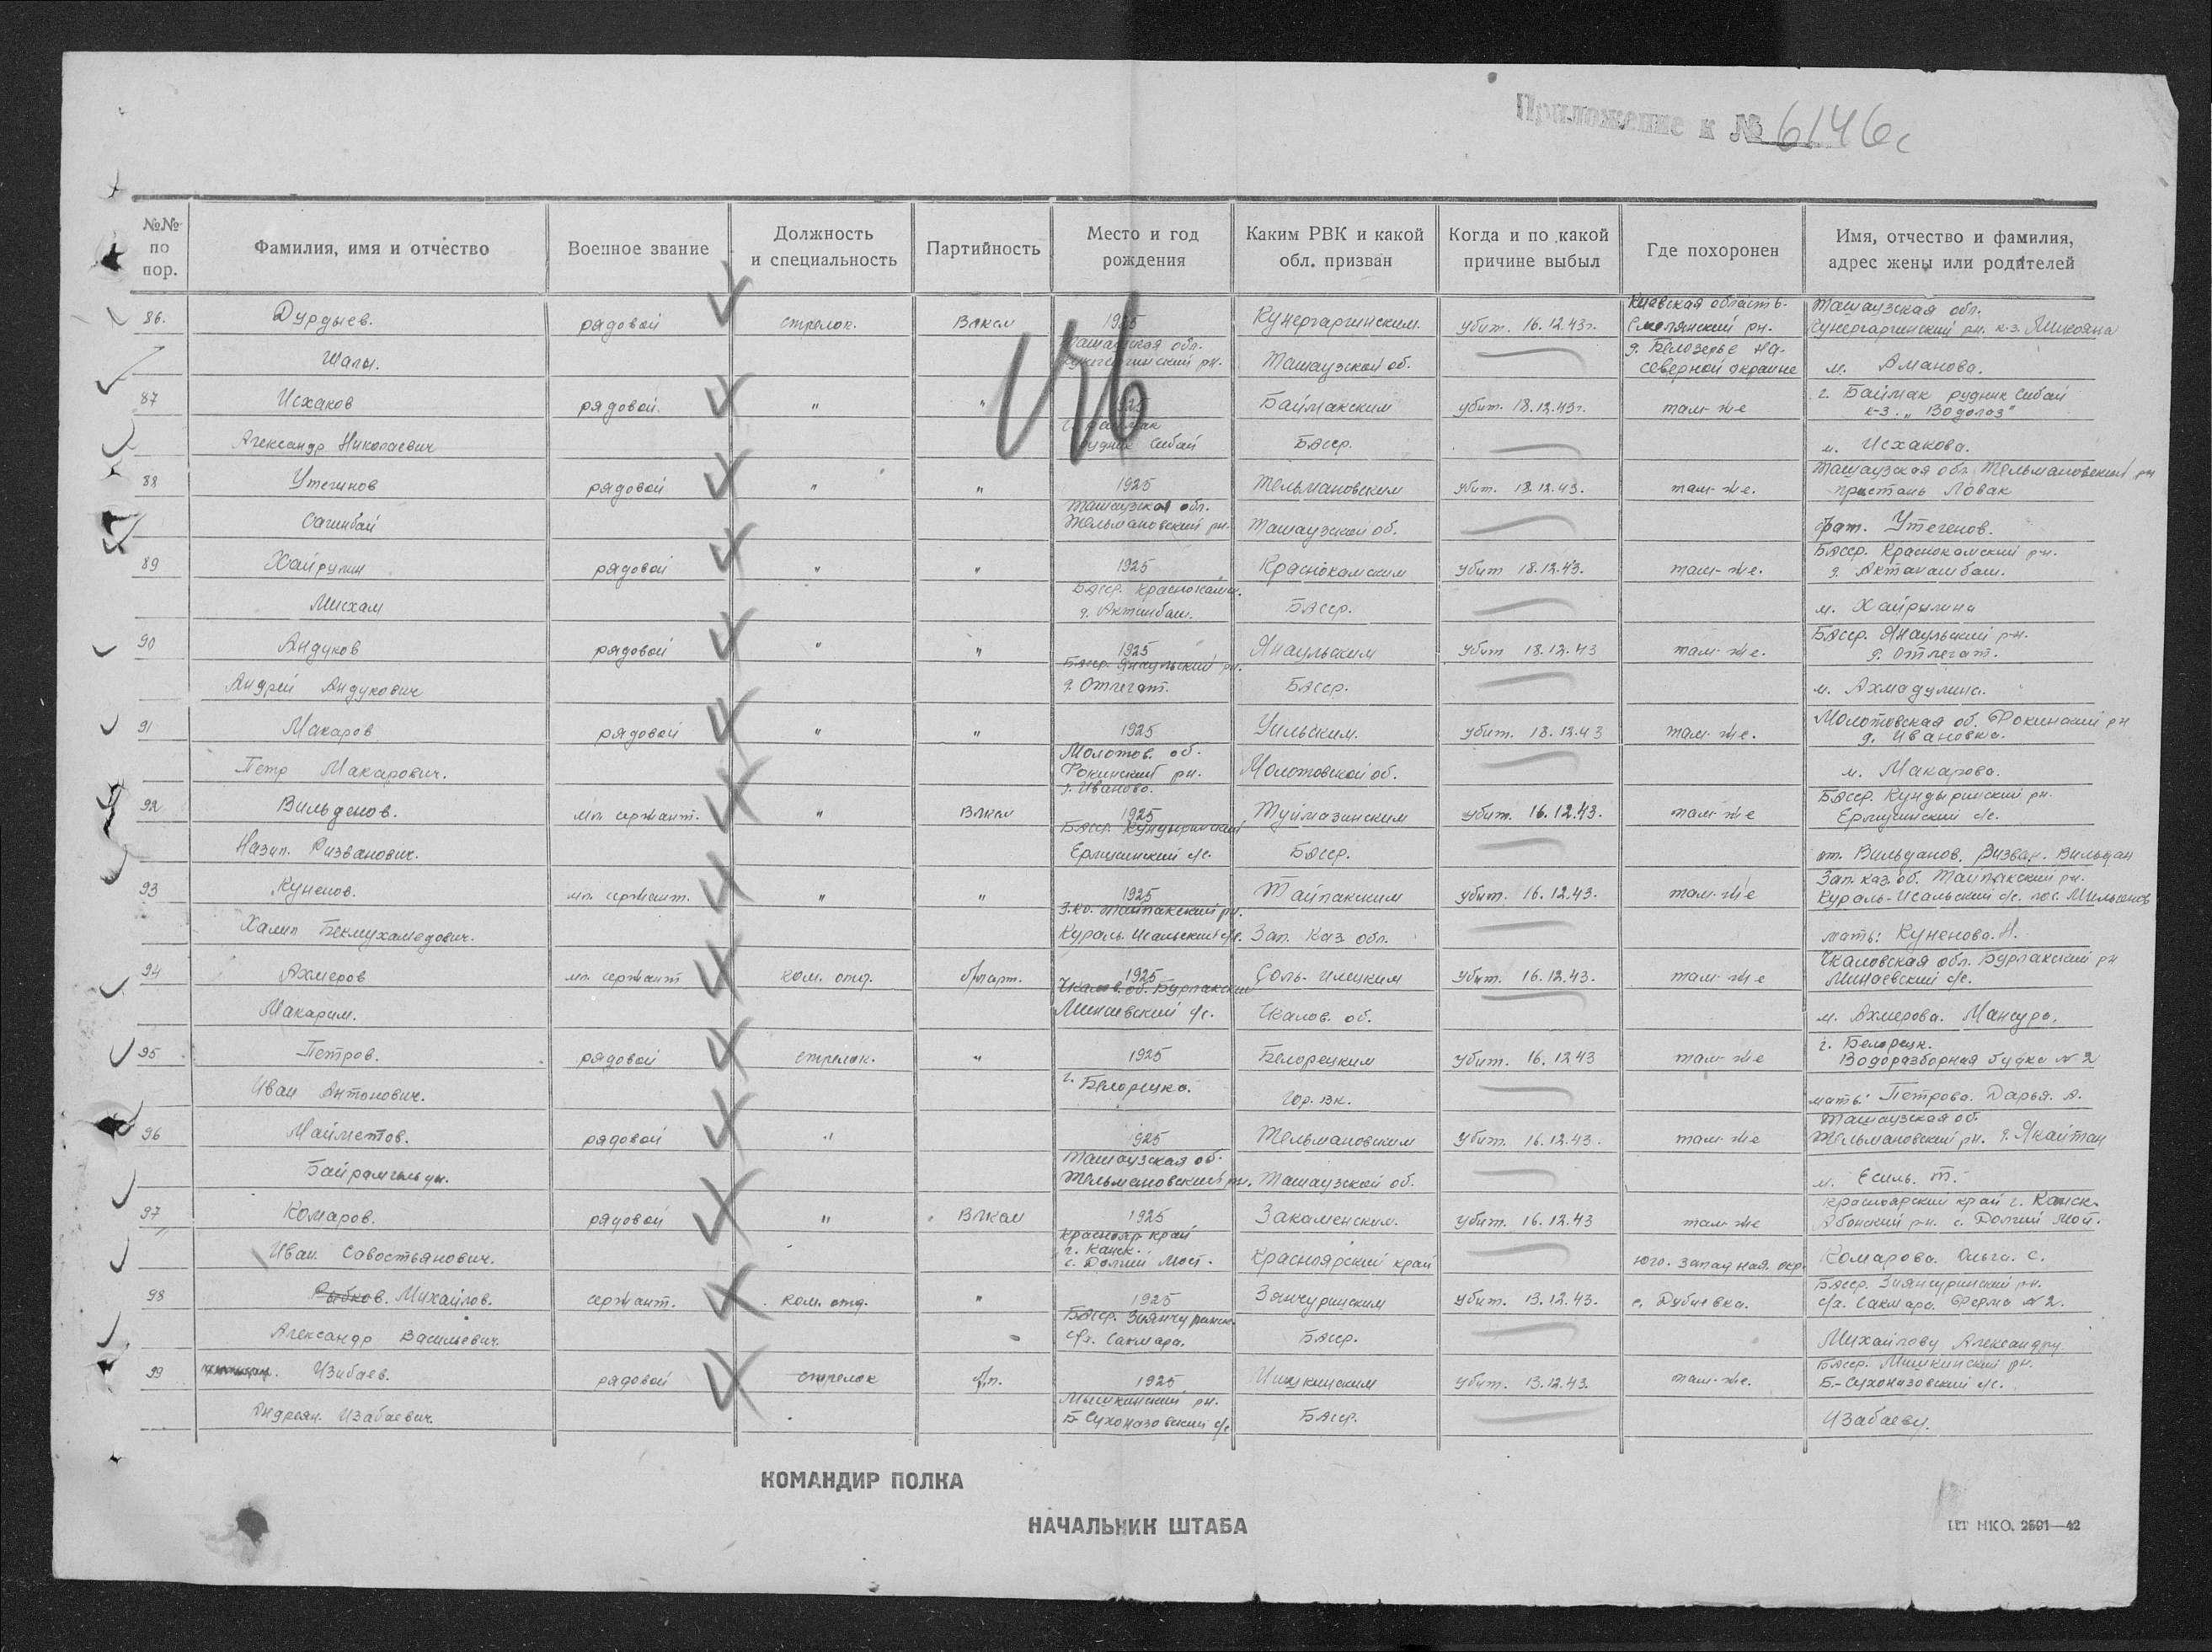 Приложение к № 6146с
№№ по пор.
Фамилия, имя и отчество
Военное звание
Должность и специальность
Партийность
Место и год рождения
Каким РВК и какой обл. призван
Когда и по какой причине выбыл
Где похоронен
Имя, отчество и фамилия, адрес жены или родителей
146
86. Дурдыев. рядовой стрелок. Влксм 1925 Кунергаргинским. убит. 16.12.43г. Киевская область. Смелянский рн. Ташаузская обл. Кунергаргинский рн. к-з. Микояна
Шалы. Ташаузская обл. Ташаузской об. д. Белозерье на северной окраине м. Аманова.
87 Исхаков рядовой. " " 1925 Баймакским убит. 18.12.43г. там-же г. Баймак рудник Сибай к-з. „Водолаз"
Александр Николаевич г. Баймак рудник Сибай БАсср. м. Исхакова.
88 Утегинов рядовой " " 1925 Тельмановским убит. 18.12.43. там-же. Ташаузская обл. Тельмановский рн пристань Ловак
Сагинбай Ташаузская обл. Тельмановский рн. Ташаузской об. брат. Утегенов.
89 Хайрулин рядовой " " 1925 Краснокамским убит 18.12.43. там-же. БАсср. Краснокамский рн. д. Актанашбаш.
Мисхам БАсср. Краснокамск. д. Актинбаш. БАсср. м. Хайрулина
90 Андуков рядовой " " 1925 Янаульским убит 18.12.43 там-же. БАсср. Янаульский рн. д. Отлегат.
Андрей Андукович БАсср. Янаульский рн. д. Отлегат. БАсср. м. Ахмадулина.
91 Макаров рядовой " " 1925 Уильским. убит. 18.12.43 там-же. Молотовская об. Фокинский рн д. Ивановка.
Петр Макарович. Молотов. об. Фокинский рн. д. Иваново. Молотовской об. м. Макарова.
92 Вильденов. мл. сержант. " Влксм 1925 Туймазинским убит. 16.12.43. там-же БАсср. Кундыринский рн. с/с.
Назип. Ризванович. БАсср. Кундыринский с/с. БАсср. от. Вильданов, Ризван. Вильдан
93 Куненов. мл. сержант. " " 1925 Тайпакским убит. 16.12.43. там-же Зап. каз. об. Тайпакский рн. Кураль-Исальский с/с. пос.
Халип Бекмухамедович. З.Ко. Тайпакский рн. Кураль. Исальский с/с. Зап. Каз обл. мать: Куненова. Н.
94 Ахмеров мл. сержант ком. отд. б/парт. 1925 Соль-Илецким убит. 16.12.43. там-же Чкаловская обл. Бурлакский рн Минаевский с/с.
Макарим. Чкалов. об. Бурлакский Минаевский с/с. Чкалов. об. м. Ахмерова. Мансура.
95 Петров. рядовой стрелок. " 1925 Белорецким убит. 16.12.43 там-же г. Белорецк. Водоразборная будка № 2
Иван Антонович. г. Белорецка. Гор. вк. мать: Петрова. Дарья. А.
96 Майметов. рядовой " 1925 Тельмановским убит. 16.12.43. там-же Ташаузская об. Тельмановский рн. д. Якайтан
Байрамгельды. Ташаузская об. Тельмановский рн. Ташаузской об. м. Есиль. Т.
97 Комаров. рядовой " Влксм 1925 Закаменским. убит. 16.12.43 там-же Красноярский край г. Канск. Абанский рн. с. Долгий Мост.
Иван Савостьянович. Краснояр. край г. Канск. с. Долгий Мост. Красноярский край юго. западная. окр. Комарова. Ольга. С.
98 Рыбков. Михайлов. сержант. ком. отд. " 1925 Зянчуринским убит. 13.12.43. с. Дубиевка. БАсср. Зиянчуринский рн. с/з. Сакмара. Ферма № 2.
Александр Васильевич. БАсср. Зиянчуринск. с/з. Сакмара. БАсср. Михайлову Александру
99 Изибаев. рядовой стрелок б/п. 1925 Мишкинским убит. 13.12.43. там-же. БАсср. Мишкинский рн. Б.-Сухоназовский с/с.
Андреян. Изабаевич. Мышкинский рн. Б-Сухоназовский с/с БАсср. Изабаеву.
КОМАНДИР ПОЛКА
НАЧАЛЬНИК ШТАБА
ЦТ НКО. 2591—42